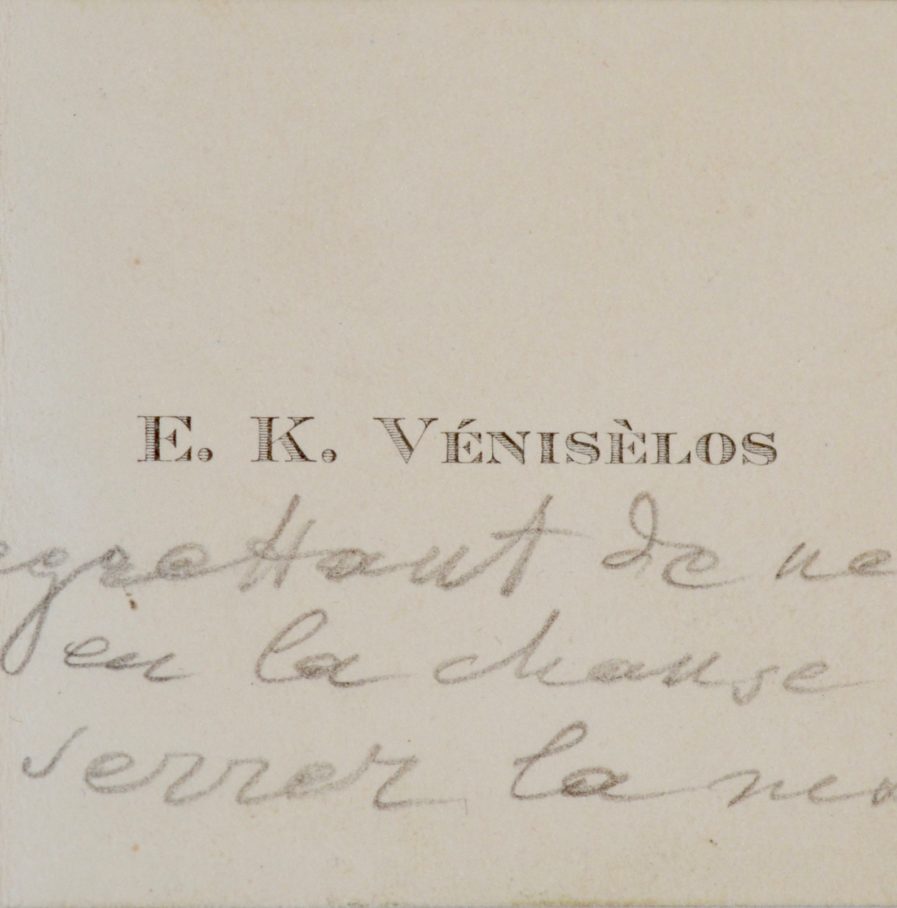 E. K. VÉNISÈLOS
egrettant de ne
en la chanse
serrer la ma